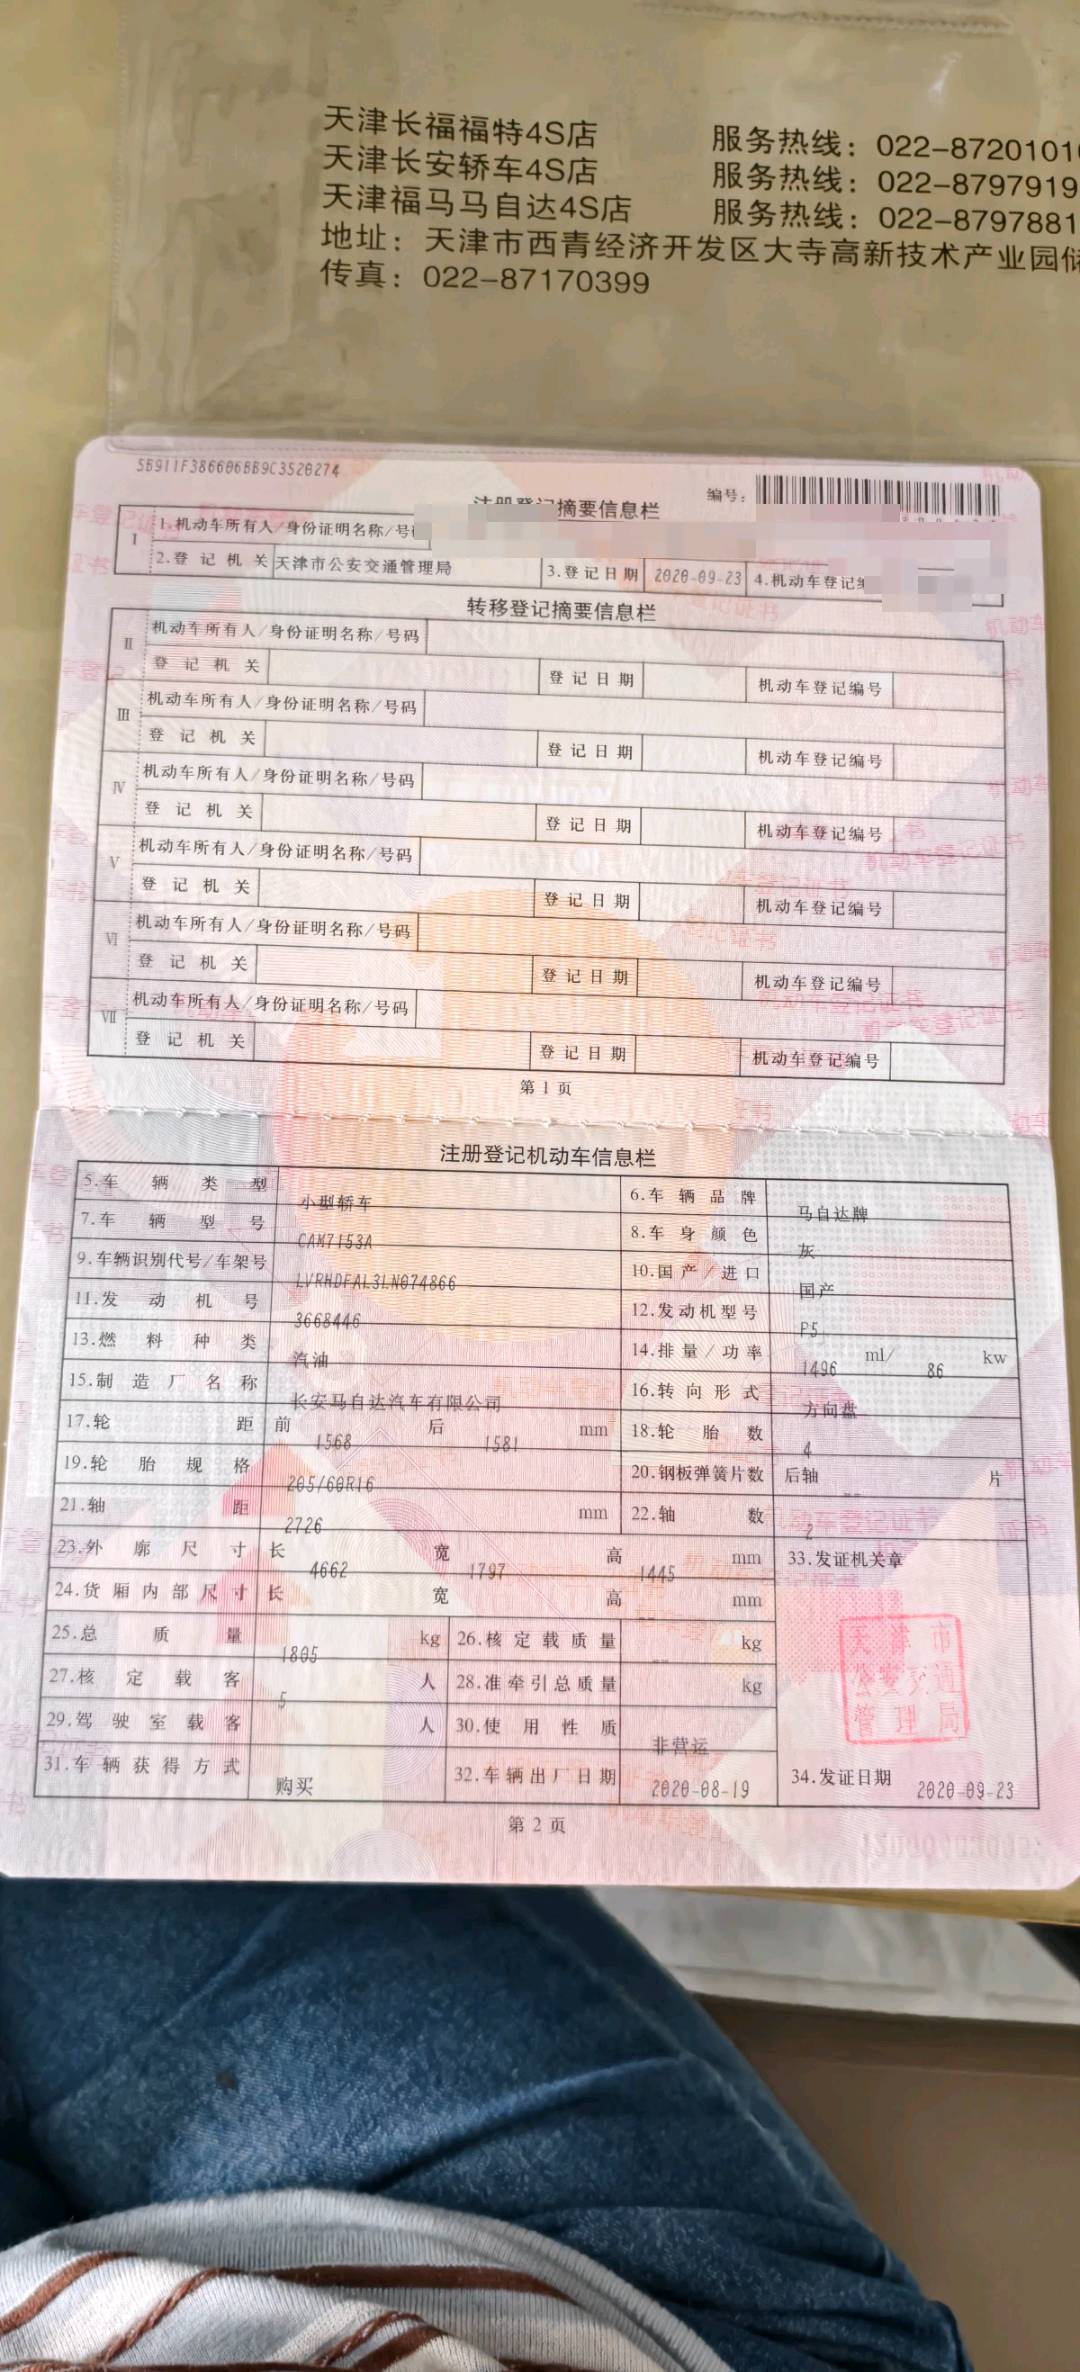 天津长福福特4S店 服务热线：022-8720101
天津长安轿车4S店 服务热线：022-8797919
天津福马马自达4S店 服务热线：022-8797881
地址：天津市西青经济开发区大寺高新技术产业园储
传真：022-87170399
5B911F386606BB9C3520274
编号：
注册登记摘要信息栏
I 1.机动车所有人/身份证明名称/号
2.登记机关 天津市公安交通管理局 3.登记日期 2020-09-23 4.机动车登记编
转移登记摘要信息栏
II 机动车所有人/身份证明名称/号码
登记机关 登记日期 机动车登记编号
III 机动车所有人/身份证明名称/号码
登记机关 登记日期 机动车登记编号
IV 机动车所有人/身份证明名称/号码
登记机关 登记日期 机动车登记编号
V 机动车所有人/身份证明名称/号码
登记机关 登记日期 机动车登记编号
VI 机动车所有人/身份证明名称/号码
登记机关 登记日期 机动车登记编号
VII 机动车所有人/身份证明名称/号码
登记机关 登记日期 机动车登记编号
第 1 页
注册登记机动车信息栏
5.车辆类型 小型轿车 6.车辆品牌 马自达牌
7.车辆型号 CAM7153A 8.车身颜色 灰
9.车辆识别代号/车架号 LVRHDFAL3LN074866 10.国产/进口 国产
11.发动机号 3668446 12.发动机型号 P5
13.燃料种类 汽油 14.排量/功率 1496 ml/ 86 kw
15.制造厂名称 长安马自达汽车有限公司 16.转向形式 方向盘
17.轮距 前 1568 后 1581 mm 18.轮胎数 4
19.轮胎规格 205/60R16 20.钢板弹簧片数 后轴 -- 片
21.轴距 2726 mm 22.轴数 2
23.外廓尺寸 长 4662 宽 1797 高 1445 mm 33.发证机关章
24.货厢内部尺寸 长 宽 高 -- mm
25.总质量 1805 kg 26.核定载质量 -- kg
27.核定载客 5 人 28.准牵引总质量 kg
29.驾驶室载客 人 30.使用性质 非营运
31.车辆获得方式 购买 32.车辆出厂日期 2020-08-19 34.发证日期 2020-09-23
天津市
公安交通
管理局
第 2 页